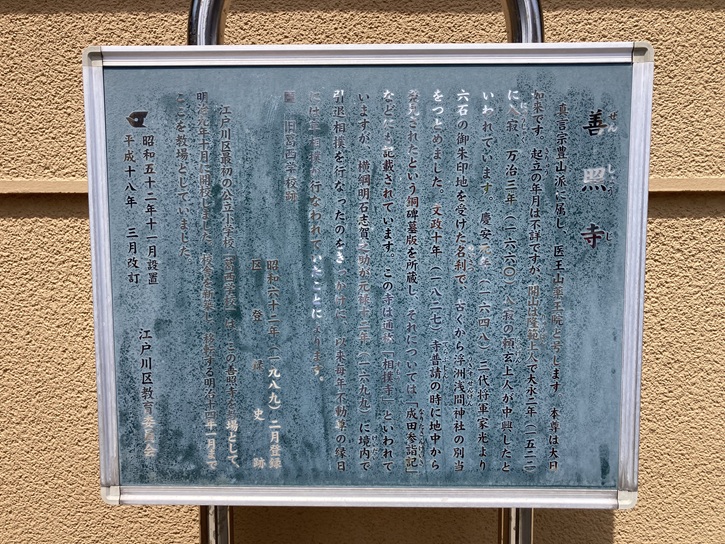 善照寺
ぜんしょうじ
真言宗豊山派に属し、医王山 と号します。本尊は大日
如来です。起立の年月は不詳ですが、開山は 上人で大永二年（一五二二）
に入寂、万治三年（一六六〇）入寂の頼玄上人が中興したと
いわれています。慶安元年（一六四八）三代将軍家光より
六石の御朱印地を受けた名刹で、古くから浮洲浅間神社の別当
をつとめました。文政十年（一八二七）寺普請の時に地中から
発見されたという銅碑墓版を所蔵し、それについては「成田参詣記」
などにも記載されています。この寺は通称「相撲寺」といわれて
いますが、横綱明石志賀之助が元禄十二年（一六九九）に境内で
引退相撲を行なったのをきっかけに、以来毎年不動尊の縁日
には 相撲が行なわれていたことによります。
旧葛西学校跡
昭和六十二年（一九八九）二月登録
区登録史跡
江戸川区最初の公立小学校「葛西学校」は、この善照寺を 場として、
明治 年十月に開校しました。校舎を新築し、移転する明治十四年一月まで
ここを教場としていました。
昭和五十二年十一月設置
平成十八年 三月改訂
江戸川区教育委員会